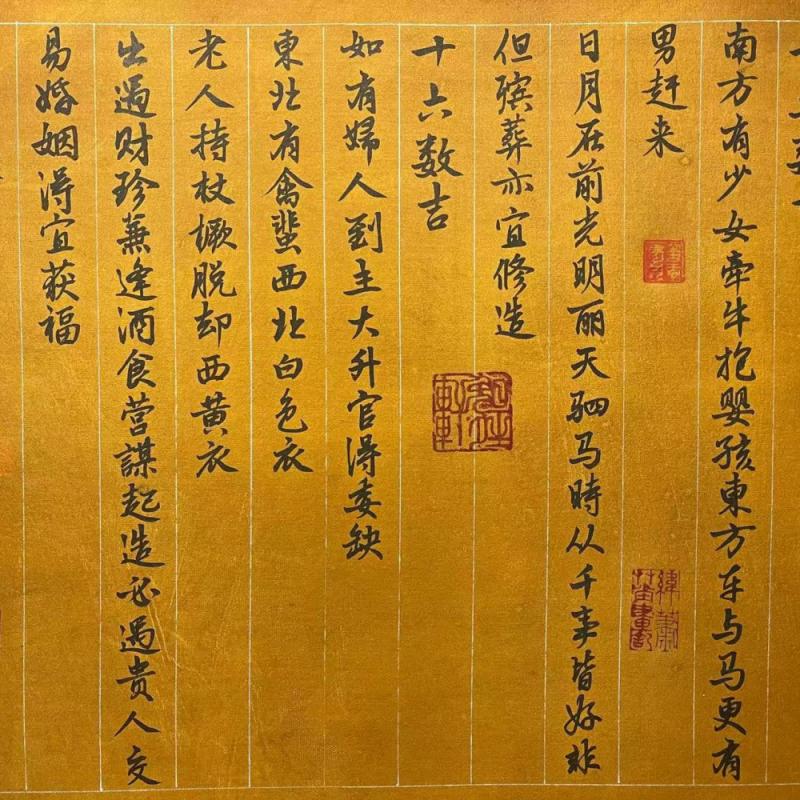 南方有少女牵牛抱婴孩東方车与马更有
男赶来
日月在前光明丽天驷马時从千事皆好非
但殡葬亦宜修造
十六数吉
如有婦人到主大升官得委缺
東北有禽蜚西北白色衣
老人持杖橛脱却西黄衣
出遇财珍兼逢酒食营謀起造必遇贵人交
易婚姻得宜获福